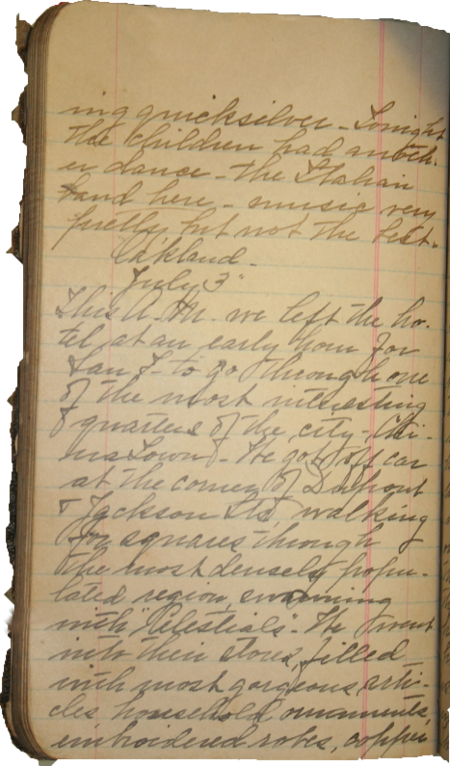 ing quicksilver - Tonight
the children had anoth-
er dance - the Italian
band here - music very
pretty but not the best.
Oakland -
July 3"
This A.M. we left the ho-
tel at an early hour for
San F - to go through one
of the most interesting
quarters of the city, Chi-
na Town - We got off car
at the corner of Dupont
& Jackson Sts, walking
for squares through
the most densely popu-
lated region, swarming
with "Celestials". We went
into their stores, filled
with most gorgeous arti-
cles household ornaments,
embroidered robes, copper